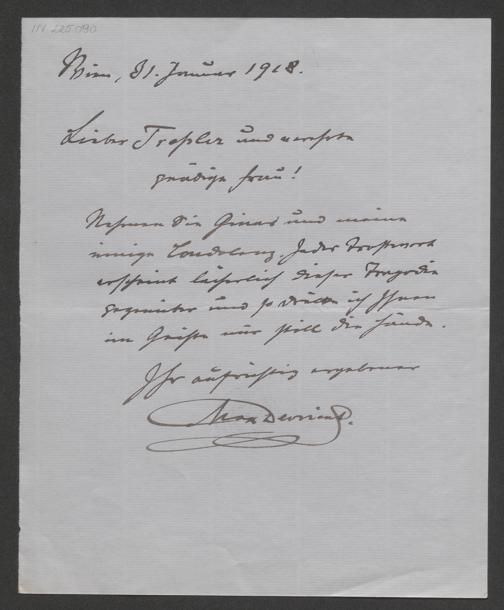 IN 225.090
Wien, 31. Januar 1918.
Lieber Treßler und verehrte
gnädige Frau!
Nehmen Sie Ginas und meine
innige Condolenz. Jedes Trostwort
erscheint lächerlich dieser Tragödie
gegenüber und so drücke ich Ihnen
im Geiste nur still die Hände.
Ihr aufrichtig ergebener
Max Devrient.